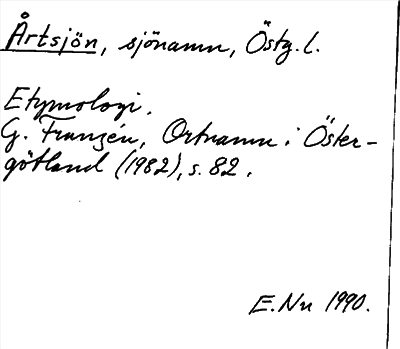 Årtsjön, sjönamn, Östg. l.
Etymologi.
G. Franzén, Ortnamn i Öster-
götland (1982), s. 82.
E. Nn 1990.